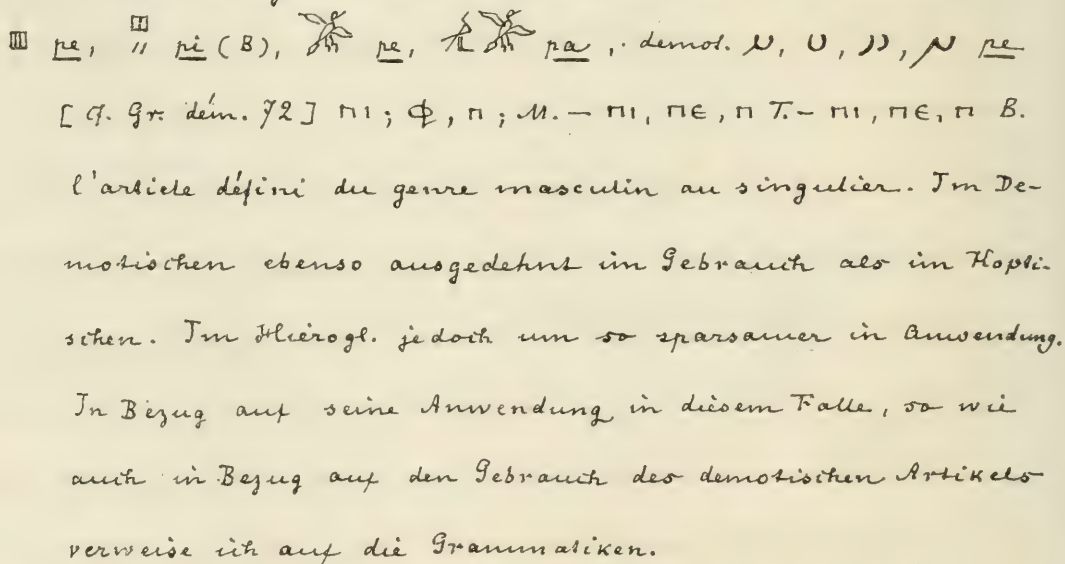 𓊪 pe, 𓊪 〃 pi (B), 𓅮 pe, 𓅮 pa, demot. pe
[cf. Gr. dém. 72] ⲡⲓ; ⲫ, ⲡ; M. – ⲡⲓ, ⲡⲉ, ⲡ T. – ⲡⲓ, ⲡⲉ, ⲡ B.
l'article défini du genre masculin au singulier. Im De-
motischen ebenso ausgedehnt im Gebrauch als im Kopti-
schen. Im Hierogl. jedoch um so sparsamer in Anwendung.
In Bezug auf seine Anwendung in diesem Falle, so wie
auch in Bezug auf den Gebrauch des demotischen Artikels
verweise ich auf die Grammatiken.